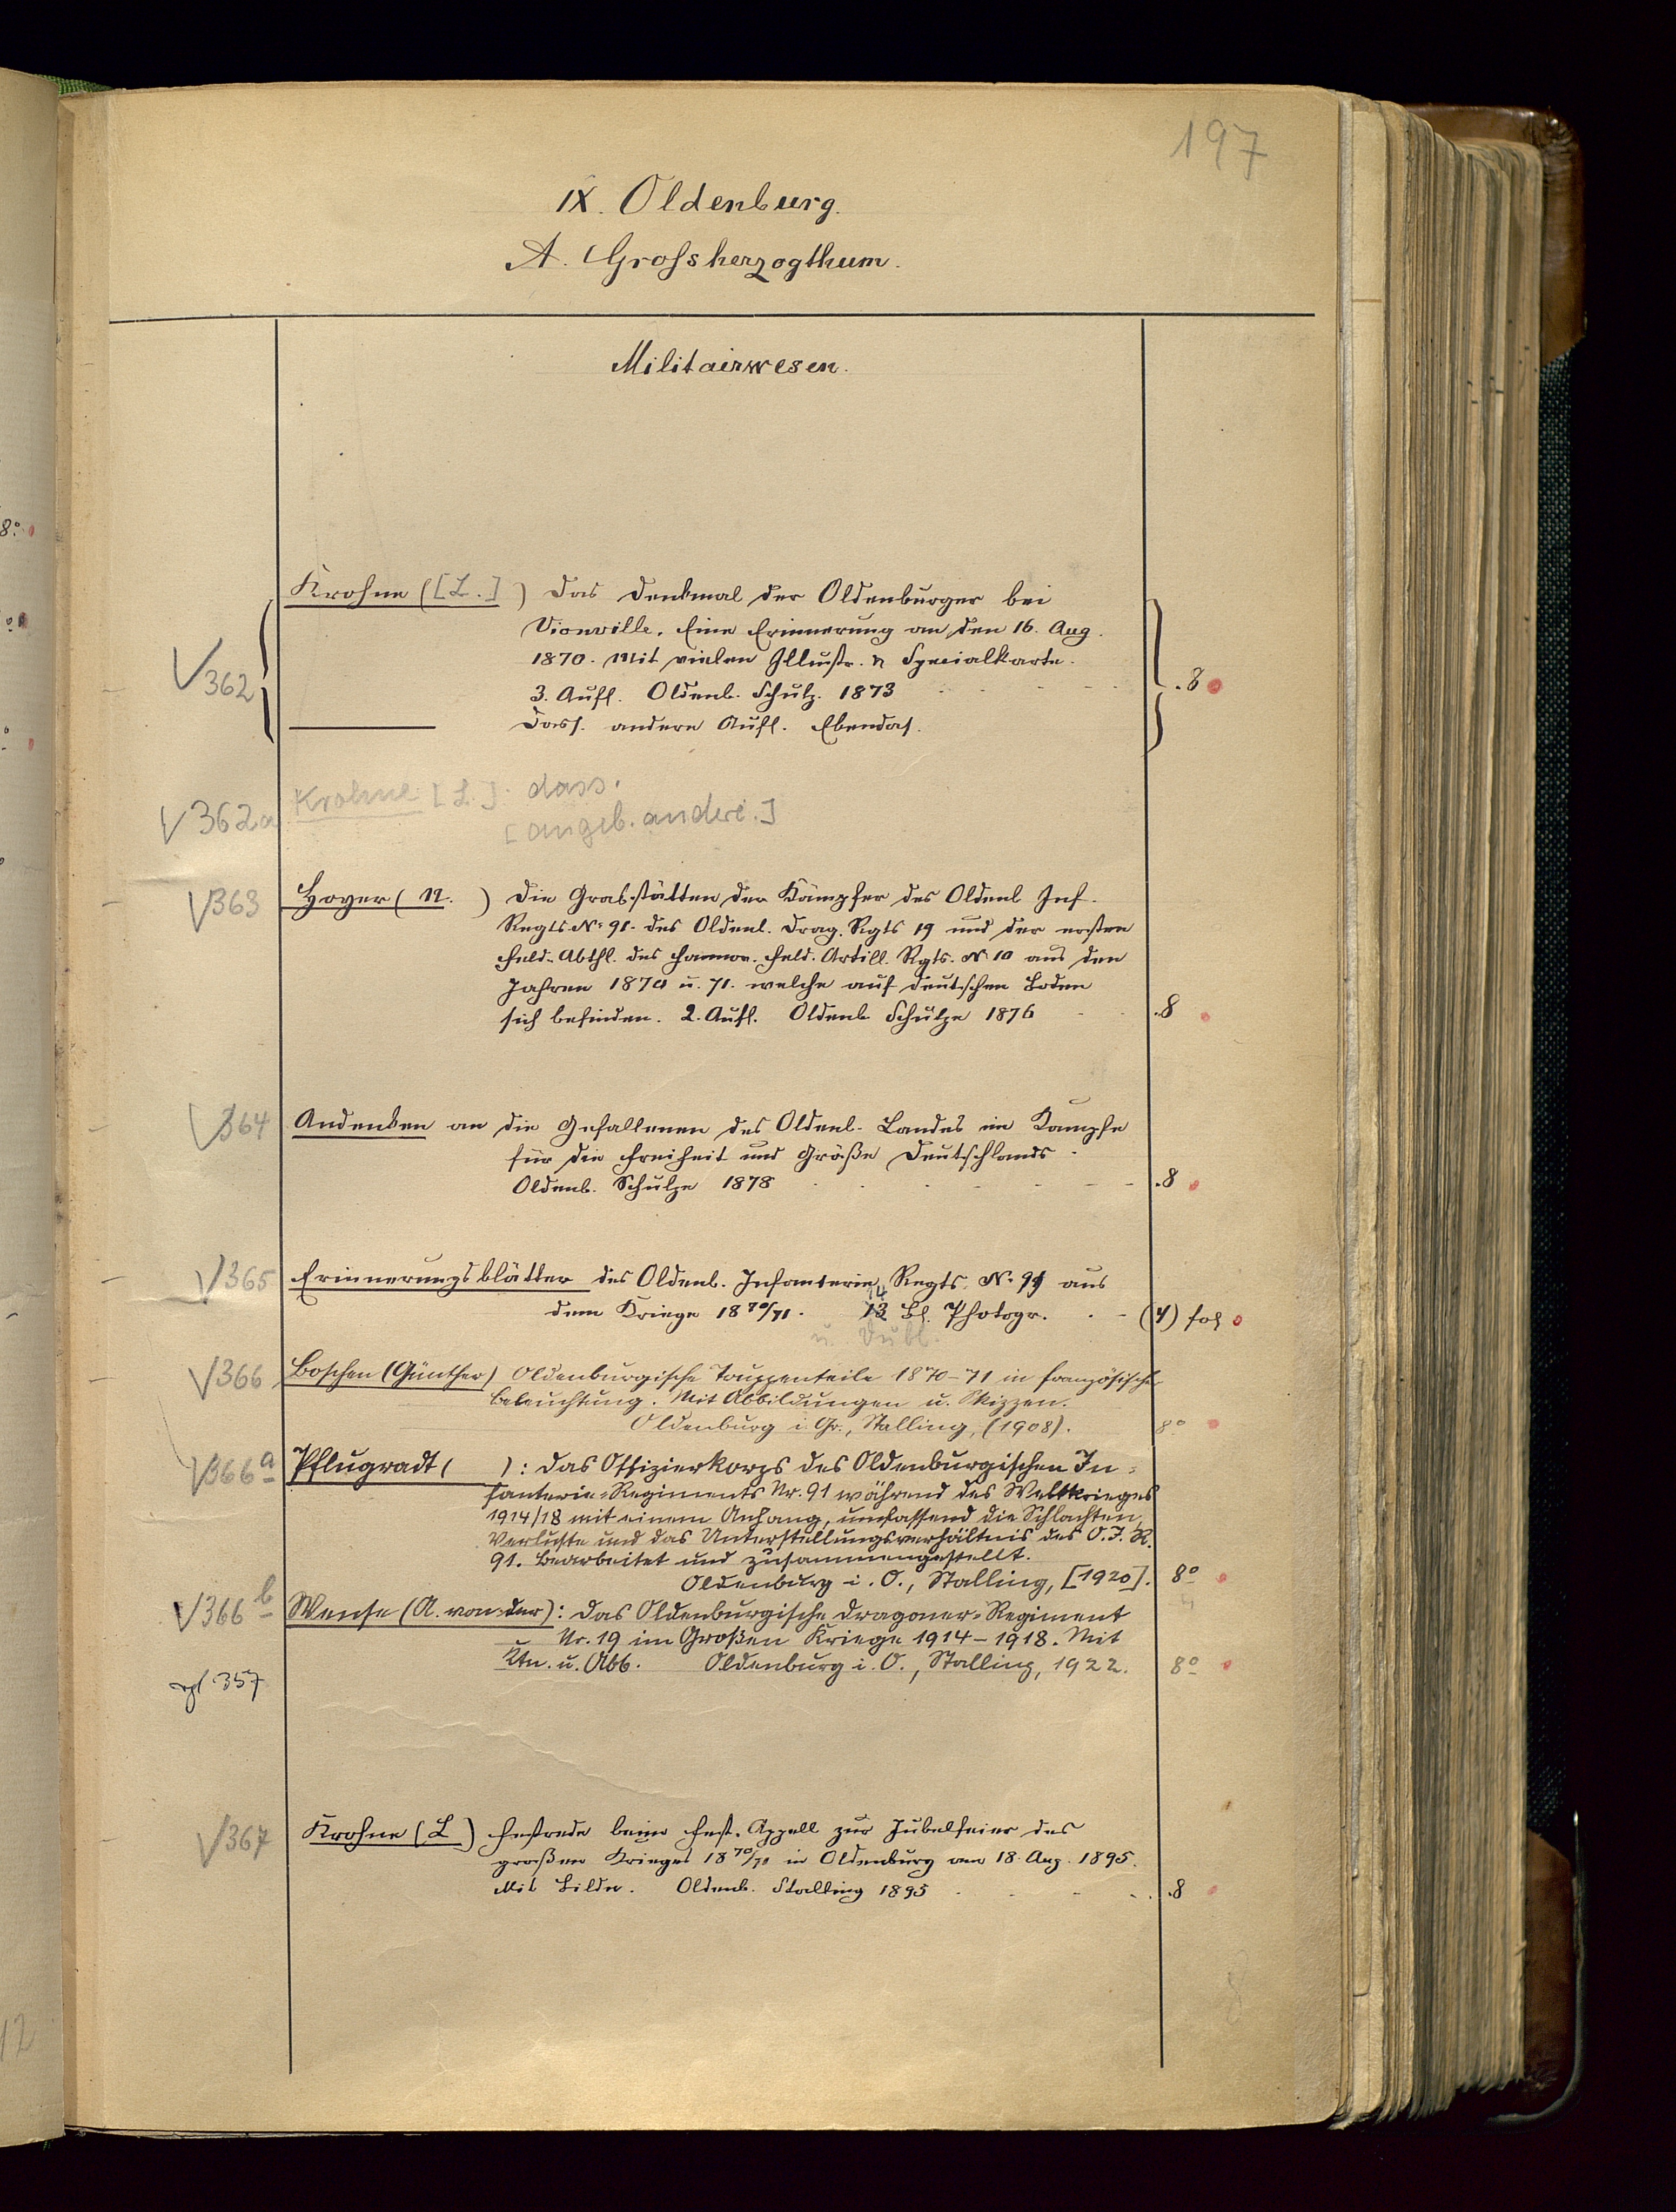 197
IX. Oldenburg.
A. Grossherzogthum.
Militairwesen.
Krohne ([L.]) Das Denkmal der Oldenburger bei
Vionville. Eine Erinnerung an den 16. Aug.
1870. Mit vielen Illustr. u Specialkarte.
√362 3. Aufl. Oldenb. Schulz. 1873 .8
——— Dass. andere Aufl. Ebendas.
√362a Krohne [L.]: dass.
[angeb. andere.]
√363 Hoyer (N. ) Die Grabstätten der Kämpfer des Oldenb Inf.
Regts No. 91. des Oldenb. Drag. Rgts 19 und der ersten
Feld-Abthl. des hannov. Feld. Artill. Rgts. No 10 aus den
Jahren 1870 u. 71. welche auf deutschen Boden
sich befinden. 2. Aufl. Oldenb Schulze 1876 .8
√364 Andenken an die Gefallenen des Oldenb. Landes im Kampfe
für die Freiheit und Größe Deutschlands.
Oldenb. Schulze 1878 .8
√365 Erinnerungsblätter des Oldenb. Infanterie Regts. No. 91 aus
14
dem Kriege 1870/71. 13 Bl. Photogr. (4) fol
u. Dubl.
√366 Boschen (Günther) Oldenburgische Truppenteile 1870-71 in französischer
Beleuchtung. Mit Abbildungen u. Skizzen.
Oldenburg i. Gr., Stalling, (1908). 8°
√366a Pflugradt ( ): Das Offizierkorps des Oldenburgischen In=
fanterie=Regiments Nr. 91 während des Weltkrieges
1914/18 mit einem Anhang, umfassend die Schlachten,
Verluste und das Unterstellungsverhältnis des O.I.R.
91. Bearbeitet und zusammengestellt.
Oldenburg i. O., Stalling, [1920]. 8°
√366b Wense (A. von der): Das Oldenburgische Dragoner=Regiment
Nr. 19 im Großen Kriege 1914-1918. Mit
Ktn. u. Abb. Oldenburg i. O., Stalling, 1922. 8°
vgl. 357
√367 Krohne (L) Festrede beim Fest-Appell zur Jubelfeier des
großen Krieges 1870/71 in Oldenburg am 18. Aug. 1895.
Mit Bilde. Oldenb. Stalling 1895 .8